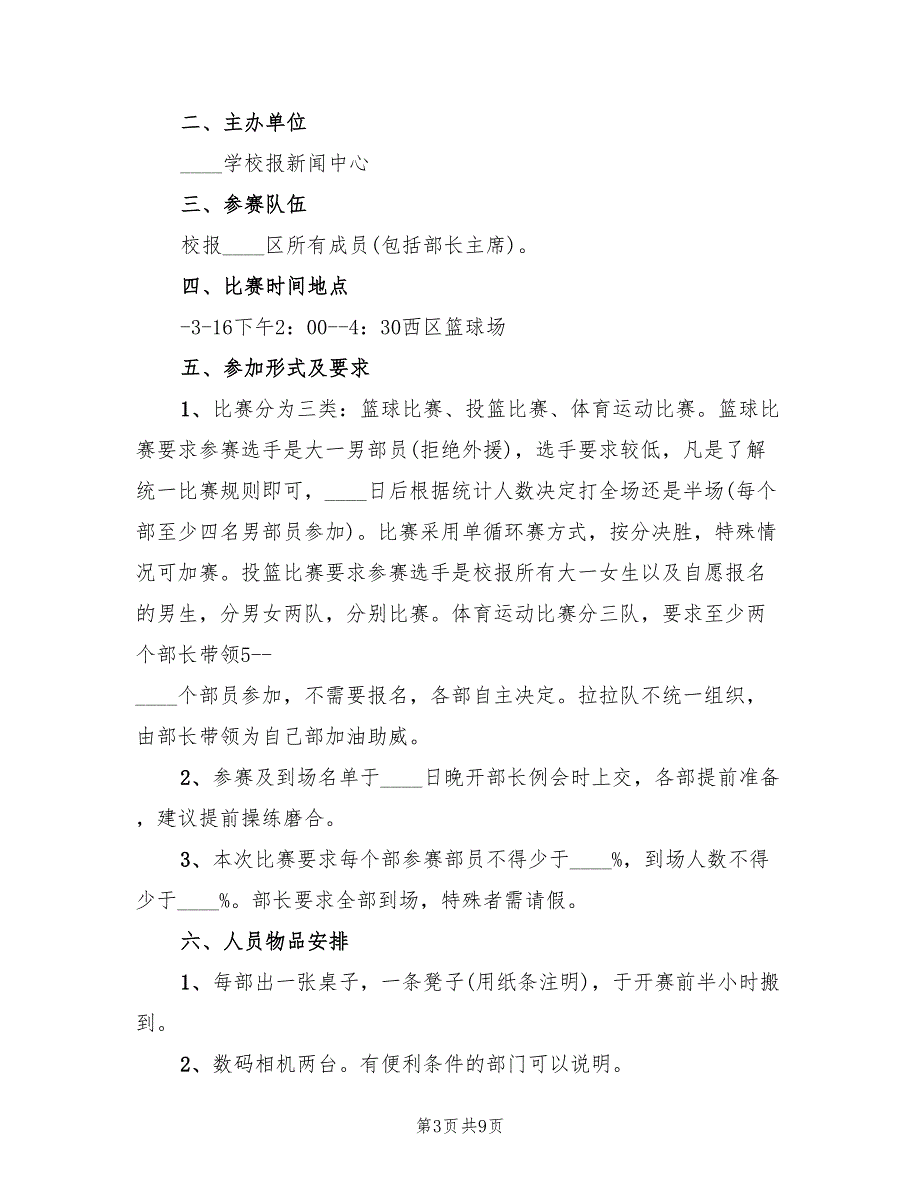 二、主办单位
____学校报新闻中心
三、参赛队伍
校报____区所有成员(包括部长主席)。
四、比赛时间地点
-3-16下午2：00--4：30西区篮球场
五、参加形式及要求
1、比赛分为三类：篮球比赛、投篮比赛、体育运动比赛。篮球比
赛要求参赛选手是大一男部员(拒绝外援)，选手要求较低，凡是了解
统一比赛规则即可，____日后根据统计人数决定打全场还是半场(每个
部至少四名男部员参加)。比赛采用单循环赛方式，按分决胜，特殊情
况可加赛。投篮比赛要求参赛选手是校报所有大一女生以及自愿报名
的男生，分男女两队，分别比赛。体育运动比赛分三队，要求至少两
个部长带领5--
____个部员参加，不需要报名，各部自主决定。拉拉队不统一组织，
由部长带领为自己部加油助威。
2、参赛及到场名单于____日晚开部长例会时上交，各部提前准备
，建议提前操练磨合。
3、本次比赛要求每个部参赛部员不得少于____%，到场人数不得
少于____%。部长要求全部到场，特殊者需请假。
六、人员物品安排
1、每部出一张桌子，一条凳子(用纸条注明)，于开赛前半小时搬
到。
2、数码相机两台。有便利条件的部门可以说明。
第3页共9页